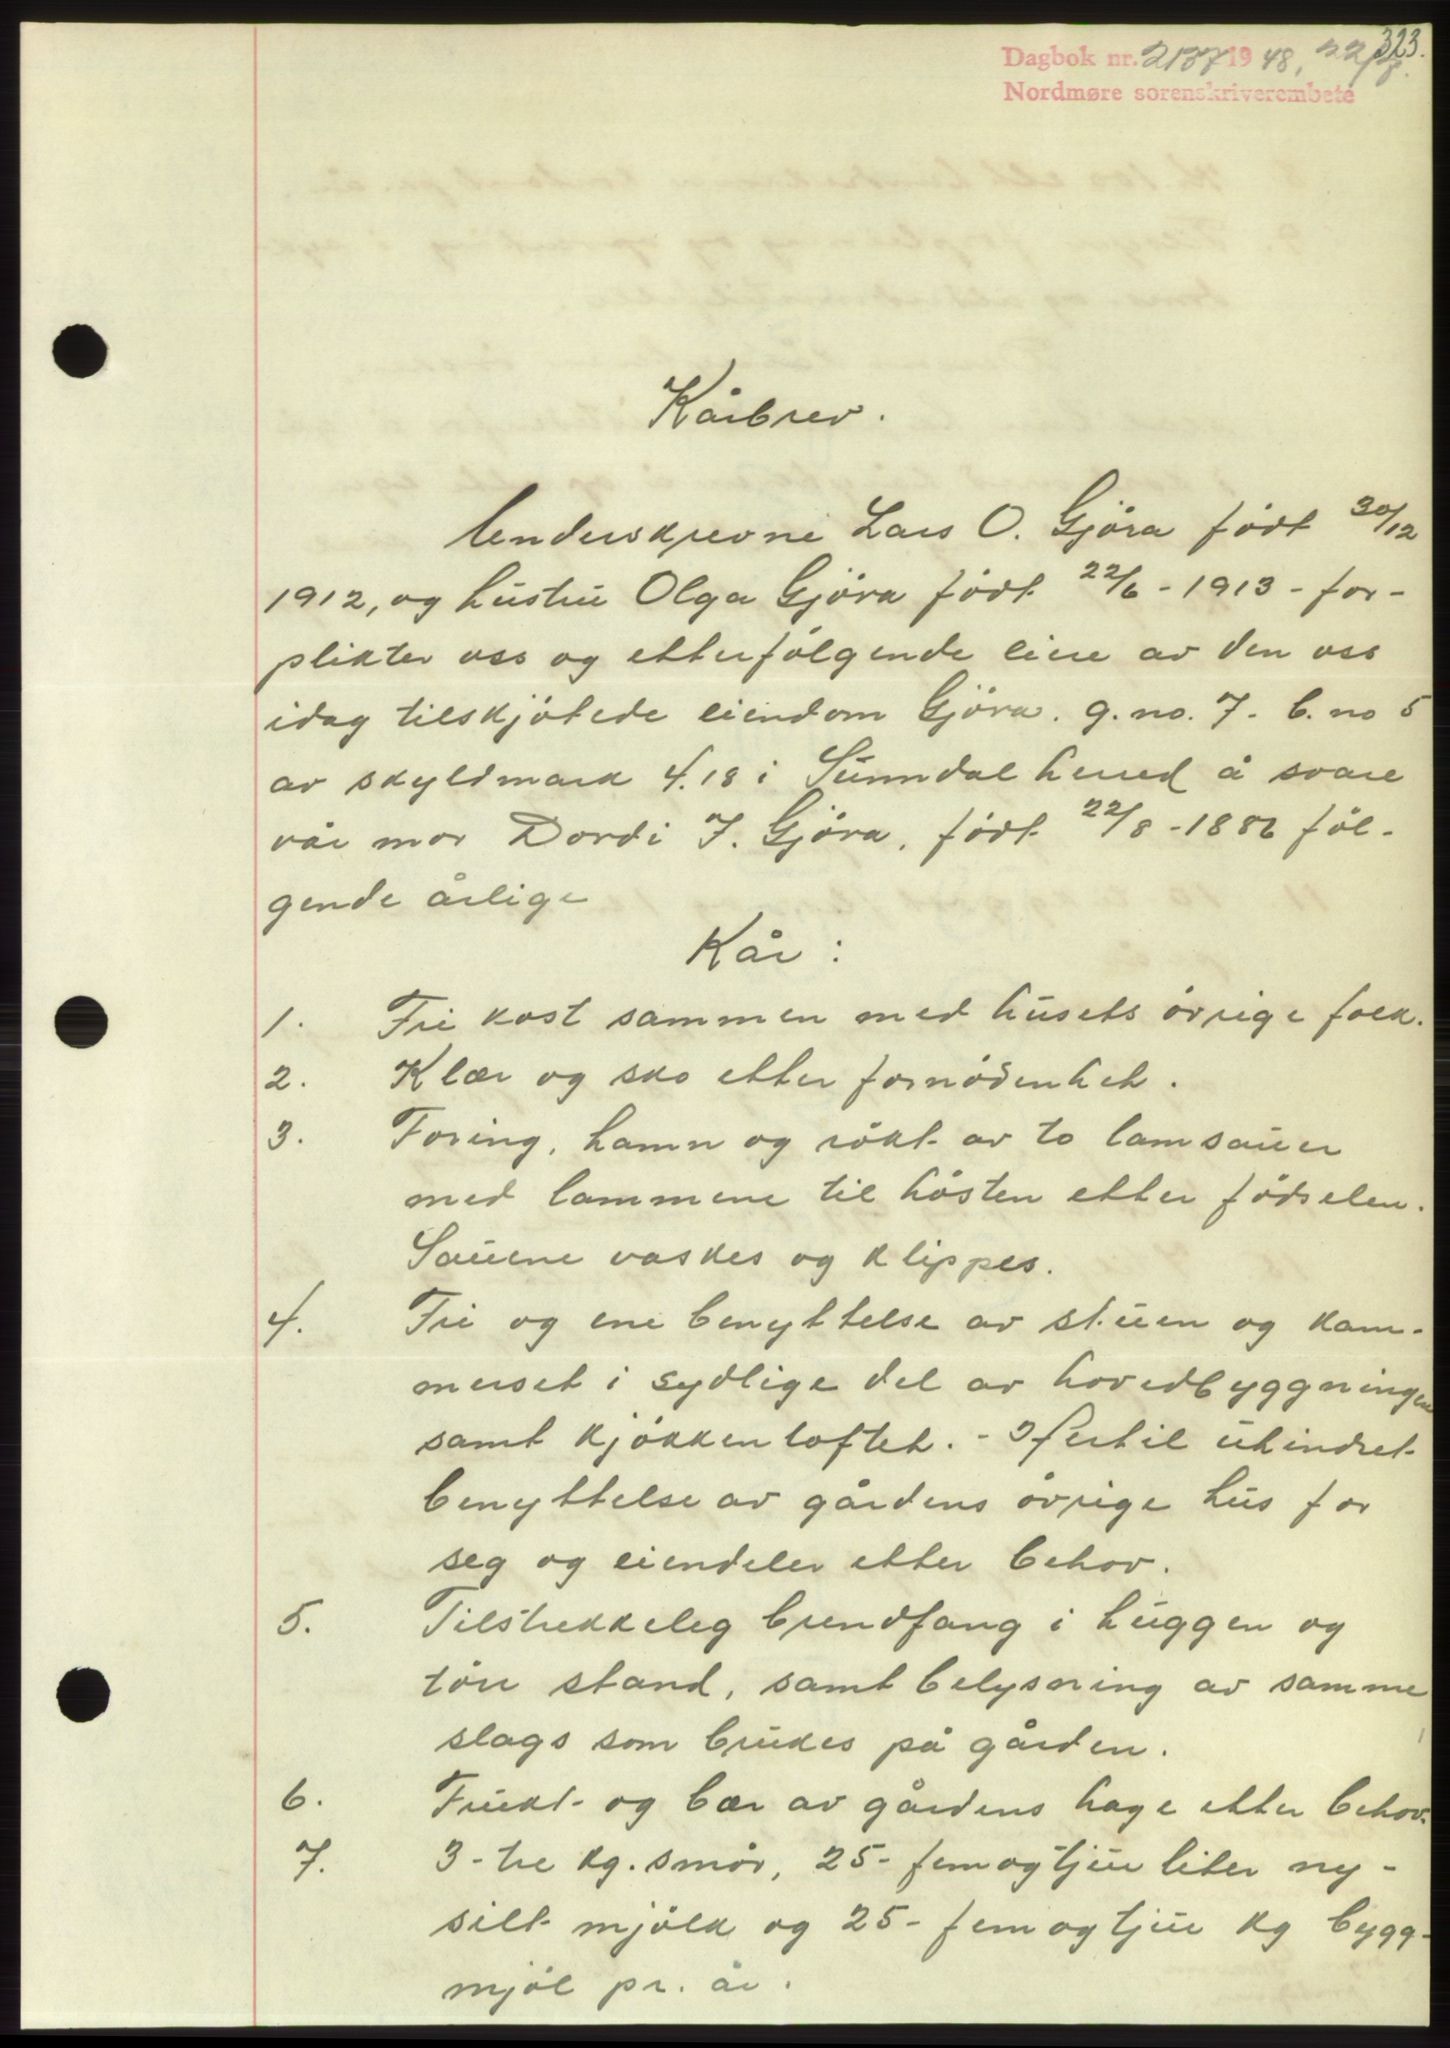 323.
Dagbok nr. 2187 19 48, 22/8.
Nordmøre sorenskriverembete
Kårbrev.
Underskrevne Lars O. Gjöra födt 30/12
1912, og hustru Olga Gjöra födt 22/6 - 1913 - for-
plikter oss og etterfölgende eiere av den oss
idag tilskjötede eiendom Gjöra. g. no. 7. b. no 5
av skyldmark 4.18 i Sunndal herred å svare
vår mor Dordi J. Gjöra, födt 22/8 - 1886 föl-
gende årlige
Kår :
1. Fri kost sammen med husets övrige folk.
2. Klær og sko etter fornödenhet.
3. Foring, hamn og rökt av to lamsauer
med lammene til hösten etter födselen.
Sauene vaskes og klippes.
4. Fri og ene benyttelse av stuen og kam-
merset i sydlige del av hovedbyggningen
samt kjökkenloftet. - Hertil uhindret
benyttelse av gårdens övrige hus for
seg og eiendeler etter behov.
5. Tilstrekkeleg brendfang i huggen og
törr stand, samt belysning av samme
slags som brukes på gården.
6. Frukt og bær av gårdens hage etter behov.
7. 3 - tre kg. smör, 25 - femogtjue liter ny-
silt mjölk og 25 - femogtjue kg bygg-
mjöl pr. år.